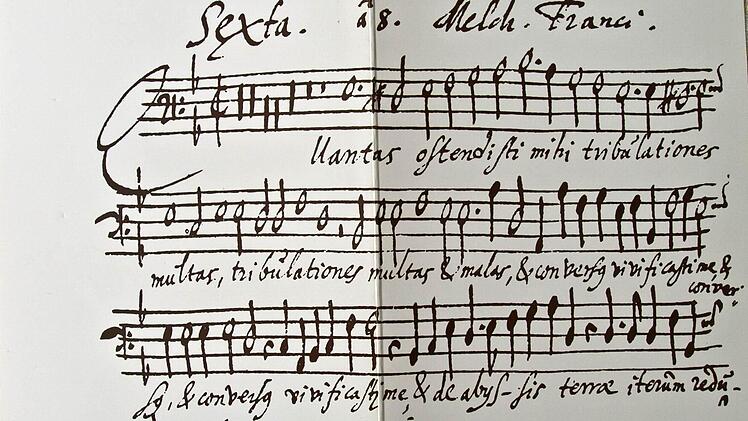 Sexta. à 8. Melch. Franci.
Quantas ostendisti mihi tribulationes
multas, tribulationes multas & malas, & conversq vivificasti me, &
conver-
sq, & conversq vivificasti me, & de abys-sis terræ iterum redū-